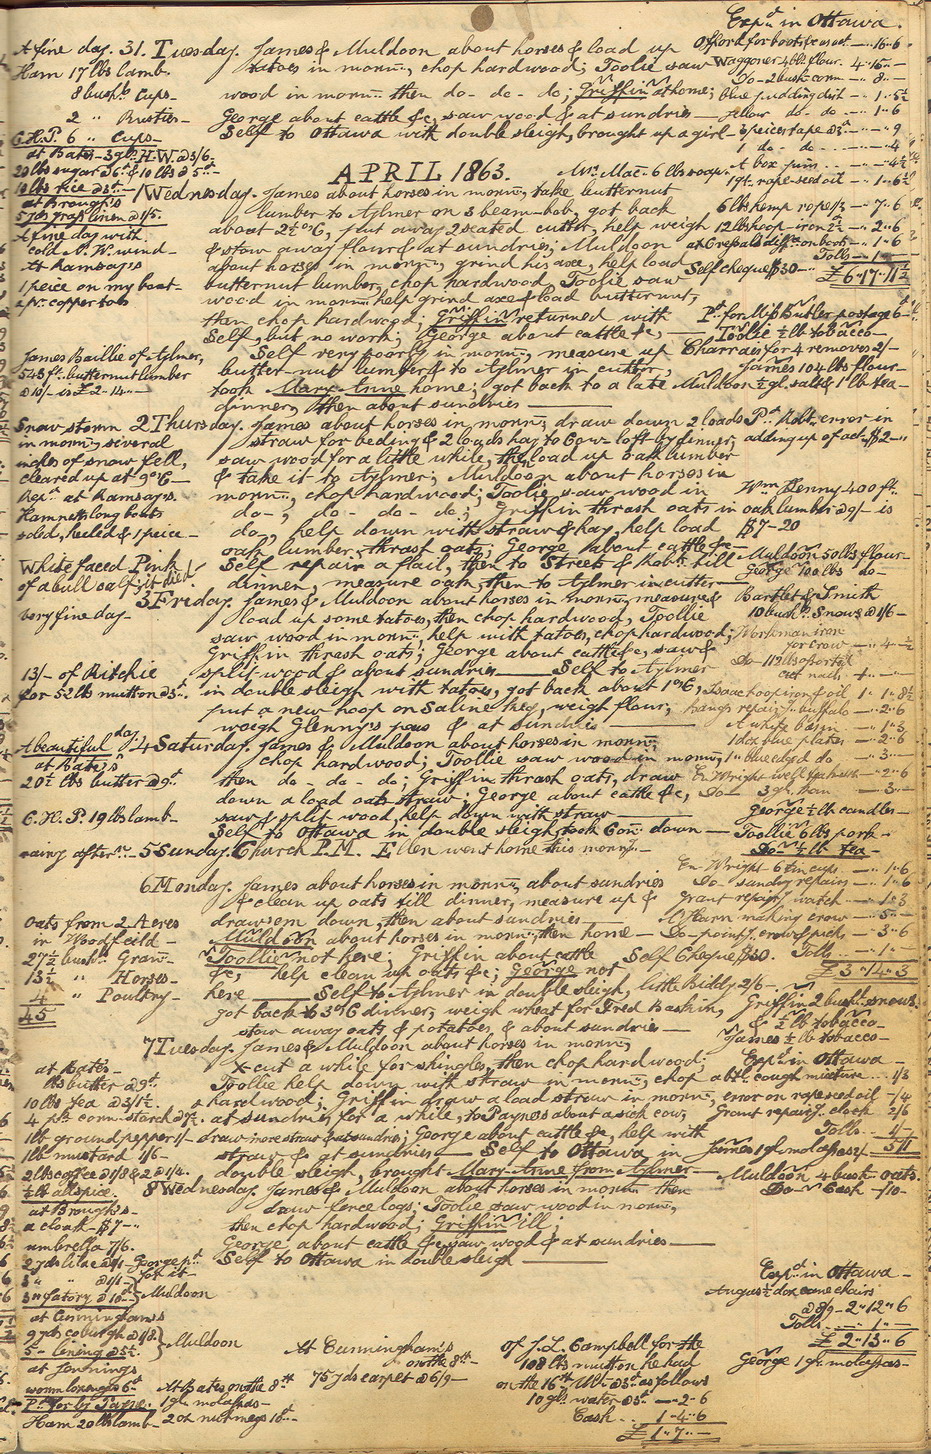 Exp.d in Ottawa.
A fine day. 31. Tuesday. James & Muldoon about horses & load up
tatoes in morn.g, chop hardwood; Toolie saw
wood in morn.g then do- do- do; Griffin at home;
George about cattle &c, saw wood & at sundries-
Self to Ottawa with double sleigh, brought up a girl-
Ham 17 lbs lamb.
8 bush.s Cups-
2 " Rusties-
C.H.P. 6 " Cups-
at Bates- 3 gls. H.W. @ 3/6-
20 lbs sugar @ 6d & 10 lbs @ 5
10 lbs rice @ 3d-
at Brough's
5 yds grass linen @ 1/5.
Waggoner 4 bbl flour. 4"15"-
Do- 2 bush- corn - 8"-
blue pudding dish - 1"5½
yellow do- do- - 1"6
3 peices tape @ 3d - "9
1 do- do-
A box pins - "4½
1 qt. rape-seed oil - 1"6
6 lbs hemp rope - 7"6
12 lbs hoop-iron 2½ - 2"6
diff.- on boots - 1"6
Tolls - 1"-
Self cheque $30- £6"17"11½
APRIL 1863.
Mrs. Mac- 6 lbs soap.
1 Wednesday. James about horses in morn.g, take butternut
lumber to Aylmer on 3 beam-bob, got back
about 2½ o'C, put away 2 seated cutter, help weigh
& stow away flour & at sundries; Muldoon
about horses in morn.g, grind his axe, help load
butternut lumber, chop hardwood; Toolie saw
wood in morn.g help grind axe & load butternut,
then chop hardwood; Griffin returned with
Self, but no work; George about cattle &c,
Self very poorly in morn.g, measure up
butter-nut lumber & to Aylmer in cutter,
took Mary-Anne home; got back to a late
dinner, then about sundries
A fine day with.
cold N.W. wind-
At Ramsay's
1 peice on my boot-
2 pr. copper toes
James Baillie of Aylmer,
548 ft. butternut lumber
@ 10/- is £2"14"-
Pd. for Mrs Butler postage 6d
Toolie ½ lb tobacco
Charraes for 4 removes 2/-
James 104 lbs flour-
Muldoon ½ gl. salt & 1 lb tea-
Snow storm 2 Thursday. James about horses in morn.g draw down 2 loads
straw for beding & 2 loads hay to Cow-loft by dinner,
saw wood for a little while, then load up oak lumber
& take it to Aylmer; Muldoon about horses in
morn.g, chop hardwood; Toolie saw wood in
do-, do- do- do; Griffin thrash oats in
do, help down with straw & hay, help load
oak lumber, thrash oats; George about cattle &c
Self repair a flail, then to Street & Rob.t till
dinner, measure oak, then to Aylmer in cutter
in morn.g, several
inches of snow fell,
cleared up at 9 o'C-
Rep.d at Ramsay's.
Hamnetts long boots
soled, heeled & 1 peice-
White faced Pink
of a bull calf, it died
Pd Rob.t error in
adding up of act. $2-"
Wm Kenny 400 ft.
oak lumber @ 9/- is
$7-20
Muldoon 50 lbs flour-
George 100 lbs do-
Bartlet & Smith
10 bush.s Snows @ 1/6-
3 Friday. James & Muldoon about horses in morn.g, measure &
load up some tatoes, then chop hardwood, Toolie
saw wood in morn.g, help with tatoes, chop hardwood;
Griffin thrash oats; George about cattle &c, saw &
split wood & about sundries Self to Aylmer
in double sleigh with tatoes, got back about 1 o'C,
put a new hoop on Saline keg, weigh flour,
weigh Glenny's peas & at sundries
very fine day-
13/- of Ritchie
for 52 lbs mutton @ 3d-
Workman iron
for Crow - 4-½
Isaac hoop iron & oil 1" 1"8½
repair.g buffalo - 2"6
A white basin - 1"3
1 doz blue plates - 2"6
" blue edgd do - 3"
A beautiful day. 4 Saturday. James & Muldoon about horses in morn.g
chop hardwood; Toolie saw wood in morn.g,
then do- do- do; Griffin thrash oats, draw
down a load oats straw; George about cattle &c,
saw & split wood, help down with straw
Self to Ottawa in double sleigh, took Con down-
at Bate's
20½ lbs butter @ 9d
C.H.P. 19 lbs lamb-
George ½ lb candles-
Toolie 6 lbs pork-
Do- ½ lb tea-
rainy after.n - 5 Sunday. Church P.M. Ellen went home this morn.g-
6 Monday. James about horses in morn.g, about sundries
& clean up oats till dinner, measure up &
draw em down, then about sundries
Muldoon about horses in morn.g, then home-
Toolie not here; Griffin about cattle
&c, help clean up oats &c; George not
here Self to Aylmer in double sleigh, little Biddy 2/6-
got back to 3 o'C dinner, weigh wheat for Fred Baskin,
stow away oats & potatoes, & about sundries-
Oats from 2 Acres
in Wood feild-
27½ bush.s Gran.-
13½ " Horses-
4 " Poultry-
45
En- Wright 6 tin cups - 1"6
Do- sundry repairs - 1"6
Grant repair.g watch - 1"3
O'Hearn making crow - 5"-
Do- point.g crow & picks - 3"6
Self Cheque $30. Tolls - 1"-
£3"14"3
Griffin 2 bush.s snows
& ½ lb tobacco-
James ½ lb tobacco-
7 Tuesday. James & Muldoon about horses in morn.g,
X-cut a while for shingles, then chop hardwood;
Toolie help down with straw in morn.g, chop
hardwood; Griffin draw a load straw in morn.g,
at sundries for a while, to Paynes about a sick cow,
draw more straw & at sundries; George about cattle &c, help with
straw & at sundries Self to Ottawa in
double sleigh, brought Mary-Anne from Aylmer
at Bates-
lbs butter @ 9d.
10 lbs tea @ 3/1½.
4 pts corn starch @ 7½.
1 lb ground pepper 1/-
1 lb mustard 1/6-
2 lbs coffee @ 1/8 & 2 @ 1/4.
½ lb allspice.
Exp.d in Ottawa-
a btl. cough mixture 1/3
error on rape seed oil -/4
Grant repair.g clock 2/6
Tolls 1/-
5/1
James 1 gl. molasses
Muldoon 4 bush- oats-
Do- Cash -/10-
8 Wednesday. James & Muldoon about horses in morn.g then
draw fence logs; Toolie saw wood in morn.g,
then chop hardwood; Griffin ill;
George about cattle &c, saw wood & at sundries
Self to Ottawa in double sleigh
at Brough's
a cloak- $7-"
umbrella 7/6.
2 yds lilac @ 1/1- George pd
for it-
Muldoon
at Cunningham's
9 yds coburgh @ 1/8.
5- lining @ 5½.
Muldoon
at Jennings
Pd for by Payne.
Ham 20 lbs lamb-
At Bates on the 8th
1 gl. molasses-
2 oz nutmegs 10d-
At Cunningham's
on the 8th-
75 yds carpet @ 6/9-
of J.L. Campbell for the
108 lbs mutton he had
on the 16th Ult. @ 3d as follows
10 gls. water @ 3d - 2-6
Cash. 1-4-6
£1"7"-
Exp.d in Ottawa-
Angus ½ doz cane chairs
@ 8/9- 2"12"6
Tolls - 1"-
£2"13"6
George 1 gl. molasses-